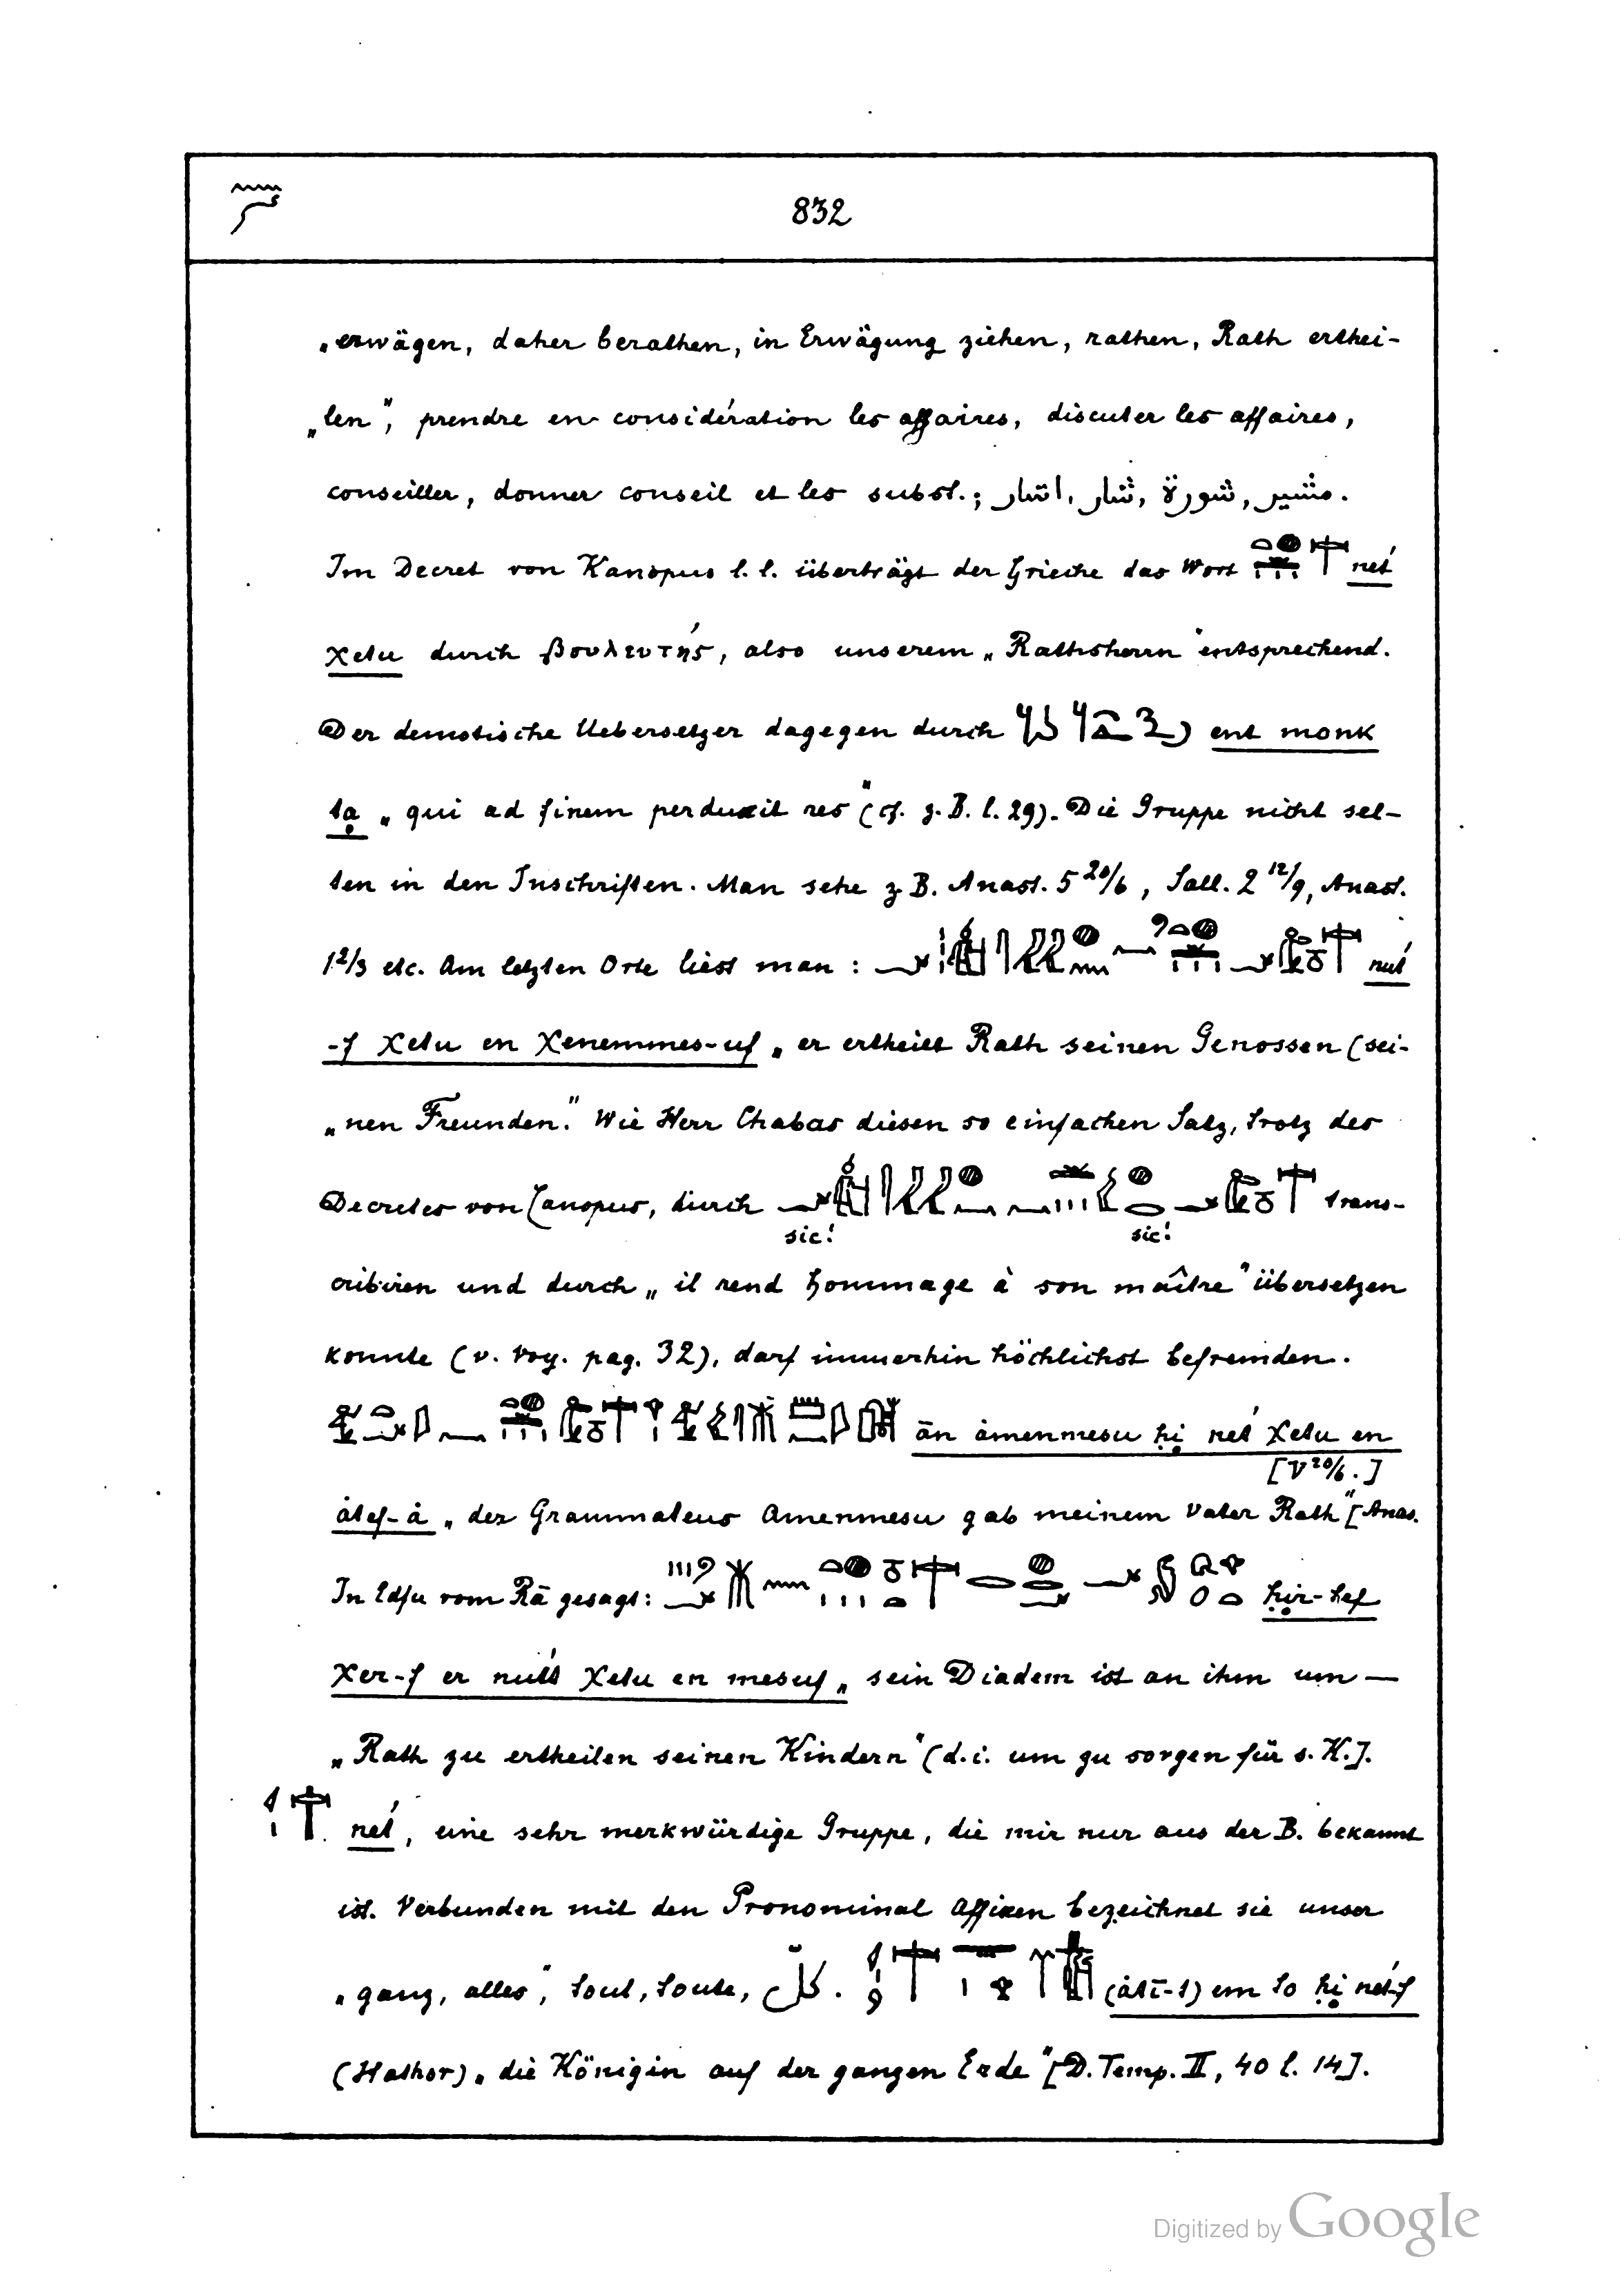 832
„erwägen, daher berathen, in Erwägung ziehen, rathen, Rath erthei-
„len", prendre en considération les affaires, discuter les affaires,
conseiller, donner conseil et les subst.; اشار, شار, شورة, مشير.
Im Decret von Kanopus l. l. überträgt der Grieche das Wort neť
χetu durch βουλευτής, also unserem „Rathsherrn" entsprechend.
Der demotische Uebersetzer dagegen durch ent monk
ta „qui ad finem perduxit res" (cf. z. B. l. 29). Die Gruppe nicht sel-
ten in den Inschriften. Man sehe z B. Anast. 5 20/6, Sall. 2 12/9, Anast.
1 2/3 etc. Am letzten Orte liest man: nuť
-f χetu en χenemmes-uf „er ertheilt Rath seinen Genossen (sei-
„nen Freunden." Wie Herr Chabas diesen so einfachen Satz, trotz des
Decretes von Canopus, durch trans-
sic! sic!
cribiren und durch „il rend hommage à son maître" übersetzen
konnte (v. Voy. pag. 32), darf immerhin höchlichst befremden.
ān ȧmenmesu ḥi neť χetu en
[V 20/6.]
ȧtef-ȧ „der Grammateus Amenmesu gab meinem Vater Rath" [Anas.
In Edfu vom Rā gesagt: ḥir-hef
χer-f er nuťt χetu en mesuf „sein Diadem ist an ihm um —
„Rath zu ertheilen seinen Kindern" (d. i. um zu sorgen für s. K.].
neť, eine sehr merkwürdige Gruppe, die mir nur aus der B. bekannt
ist. Verbunden mit den Pronominal Affixen bezeichnet sie unser
„ganz, alles", tout, toute, كلّ. (ȧtī-t) em to ḥi neť-f
(Hathor) „die Königin auf der ganzen Erde" [D. Temp. II, 40 l. 14].
Digitized by Google